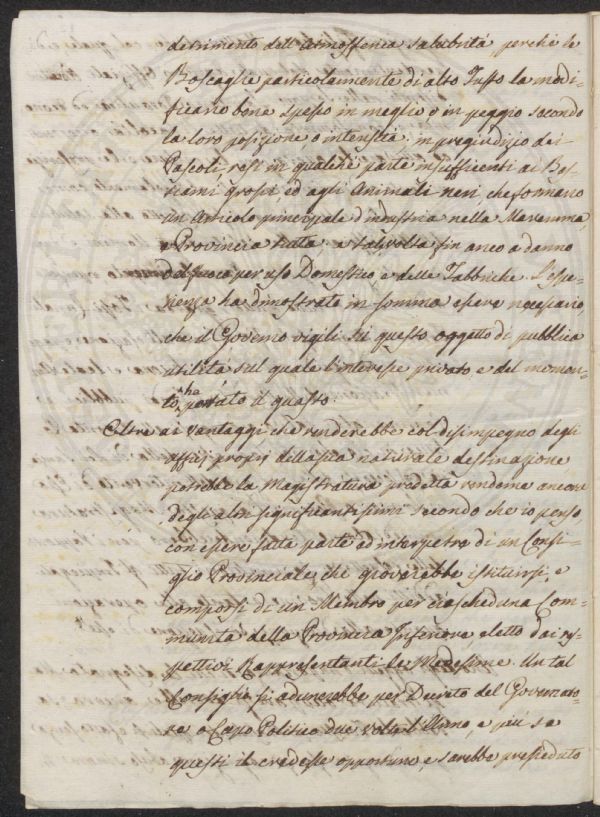 detrimento dell'Atmosferica salubrità perchè le
Boscaglie particolarmente di alto Fusto la modi-
ficano bene spesso in meglio o in peggio secondo
la loro posizione o intensità: in pregiudizio dei
Pascoli, resi in qualche parte insufficienti ai Bes-
tiami grossi, ed agli Animali neri, che formano
un Articolo principale d'industria nella Maremma,
e Provincia and talvolta fin anco a danno
del fuoco per uso Domestico e delle Fabbriche. L'espe-
rienza ha dimostrato in somma essere necessario,
che il Governo vigili su questo oggetto di pubblica
utilità sul quale l'interesse privato e del momen-
to ha portato il guasto.
Oltre ai vantaggi che renderebbe col disimpegno degli
officj proprj della sua naturale destinazione
potrebbe la Magistratura predetta renderne ancora
degli altri significantissimi secondo che io penso,
con essere fatta parte ed interpetre di un Consi-
glio Provinciale, che gioverebbe istituirsi, e
comporsi di un Membro per ciascheduna Com-
munità della Provincia Inferiore eletto dai ris-
pettivi Rappresentanti le Medesime. Un tal
Consiglio si adunerebbe per Decreto del Governato-
re o Capo Politico due volte l'Anno, e più se
questi il credesse opportuno, e sarebbe presieduto